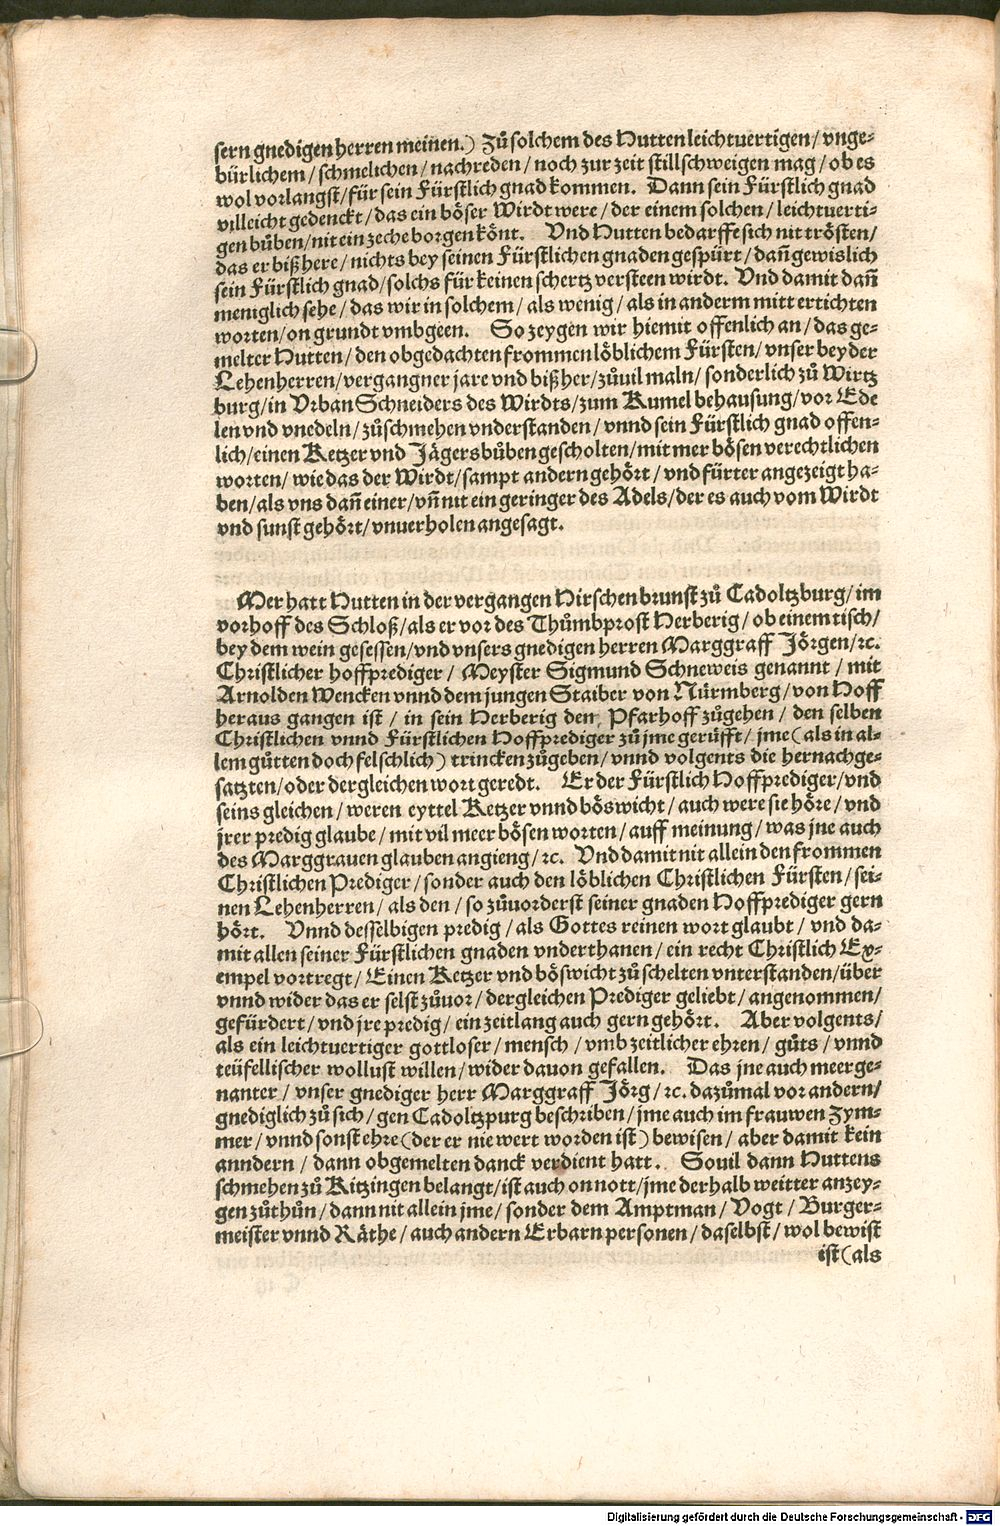 sern gnedigen herren meinen.) Zů solchem des Hutten leichtuertigen / vnge-
bürlichem / schmelichen / nachreden / noch zur zeit stillschweigen mag / ob es
wol vorlangst / für sein Fürstlich gnad kommen. Dann sein Fürstlich gnad
villeicht gedenckt / das ein böser Wirdt were / der einem solchen / leichtuerti-
gen bůben / nit ein zeche borgen könt. Vnd Hutten bedarffe sich nit trösten /
das er bißhere / nichts bey seinen Fürstlichen gnaden gespürt / dañ gewislich
sein Fürstlich gnad / solchs für keinen schertz versteen wirdt. Vnd damit dañ
meniglich sehe / das wir in solchem / als wenig / als in anderm mitt ertichten
worten / on grundt vmbgeen. So zeygen wir hiemit offenlich an / das ge-
melter Hutten / den obgedachten frommen löblichem Fürsten / vnser beyder
Lehenherren / vergangner jare vnd bißher / zůuil maln / sonderlich zů Wirtz
burg / in Vrban Schneiders des Wirdts / zum Kumel behausung / vor Ede
len vnd vnedeln / zůschmehen vnderstanden / vnnd sein Fürstlich gnad offen-
lich / einen Ketzer vnd Jägersbůben gescholten / mit mer bösen verechtlichen
worten / wie das der Wirdt / sampt andern gehört / vnd fürter angezeigt ha-
ben / als vns dañ einer / vñ nit ein geringer des Adels / der es auch vom Wirdt
vnd sunst gehört / vnuerholen angesagt.
Mer hatt Hutten in der vergangen Hirschenbrunst zů Cadoltzburg / im
vorhoff des Schloß / als er vor des Thůmbprost Herberig / ob einem tisch /
bey dem wein gesessen / vnd vnsers gnedigen herren Marggraff Jörgen / ꝛc.
Christlicher hoffprediger / Meyster Sigmund Schneweis genannt / mit
Arnolden Wencken vnnd dem jungen Staiber von Nürmberg / von Hoff
heraus gangen ist / in sein Herberig den Pfarhoff zůgehen / den selben
Christlichen vnnd Fürstlichen Hoffprediger zů jme gerüfft / jme ( als in al-
lem gůtten doch felschlich ) trincken zůgeben / vnnd volgents die hernachge-
satzten / oder dergleichen wort geredt. Er der Fürstlich Hoffprediger / vnd
seins gleichen / weren eyttel Ketzer vnnd böswicht / auch were sie höre / vnd
jrer predig glaube / mit vil meer bösen worten / auff meinung / was jne auch
des Marggrauen glauben angieng / ꝛc. Vnd damit nit allein den frommen
Christlichen Prediger / sonder auch den löblichen Christlichen Fürsten / sei-
nen Lehenherren / als den / so zůuorderst seiner gnaden Hoffprediger gern
hört. Vnnd desselbigen predig / als Gottes reinen wort glaubt / vnd da-
mit allen seiner Fürstlichen gnaden vnderthanen / ein recht Christlich Ex-
empel vortregt / Einen Ketzer vnd böswicht zů schelten vnterstanden / über
vnnd wider das er selst zůuor / dergleichen Prediger geliebt / angenommen /
gefürdert / vnd jre predig / ein zeitlang auch gern gehört. Aber volgents /
als ein leichtuertiger gottloser / mensch / vmb zeitlicher ehren / gůts / vnnd
teüfellischer wollust willen / wider dauon gefallen. Das jne auch meerge-
nanter / vnser gnediger herr Marggraff Jörg / ꝛc. dazůmal vor andern /
gnediglich zů sich / gen Cadoltzpurg beschriben / jme auch im frauwen Zym-
mer / vnnd sonst ehre ( der er nie wert worden ist ) bewisen / aber damit kein
anndern / dann obgemelten danck verdient hatt. Souil dann Huttens
schmehen zů Kitzingen belangt / ist auch on nott / jme derhalb weitter anzey-
gen zůthůn / dann nit allein jme / sonder dem Amptman / Vogt / Burger-
meister vnnd Räthe / auch andern Erbarn personen / daselbst / wol bewist
ist ( als
Digitalisierung gefördert durch die Deutsche Forschungsgemeinschaft - DFG